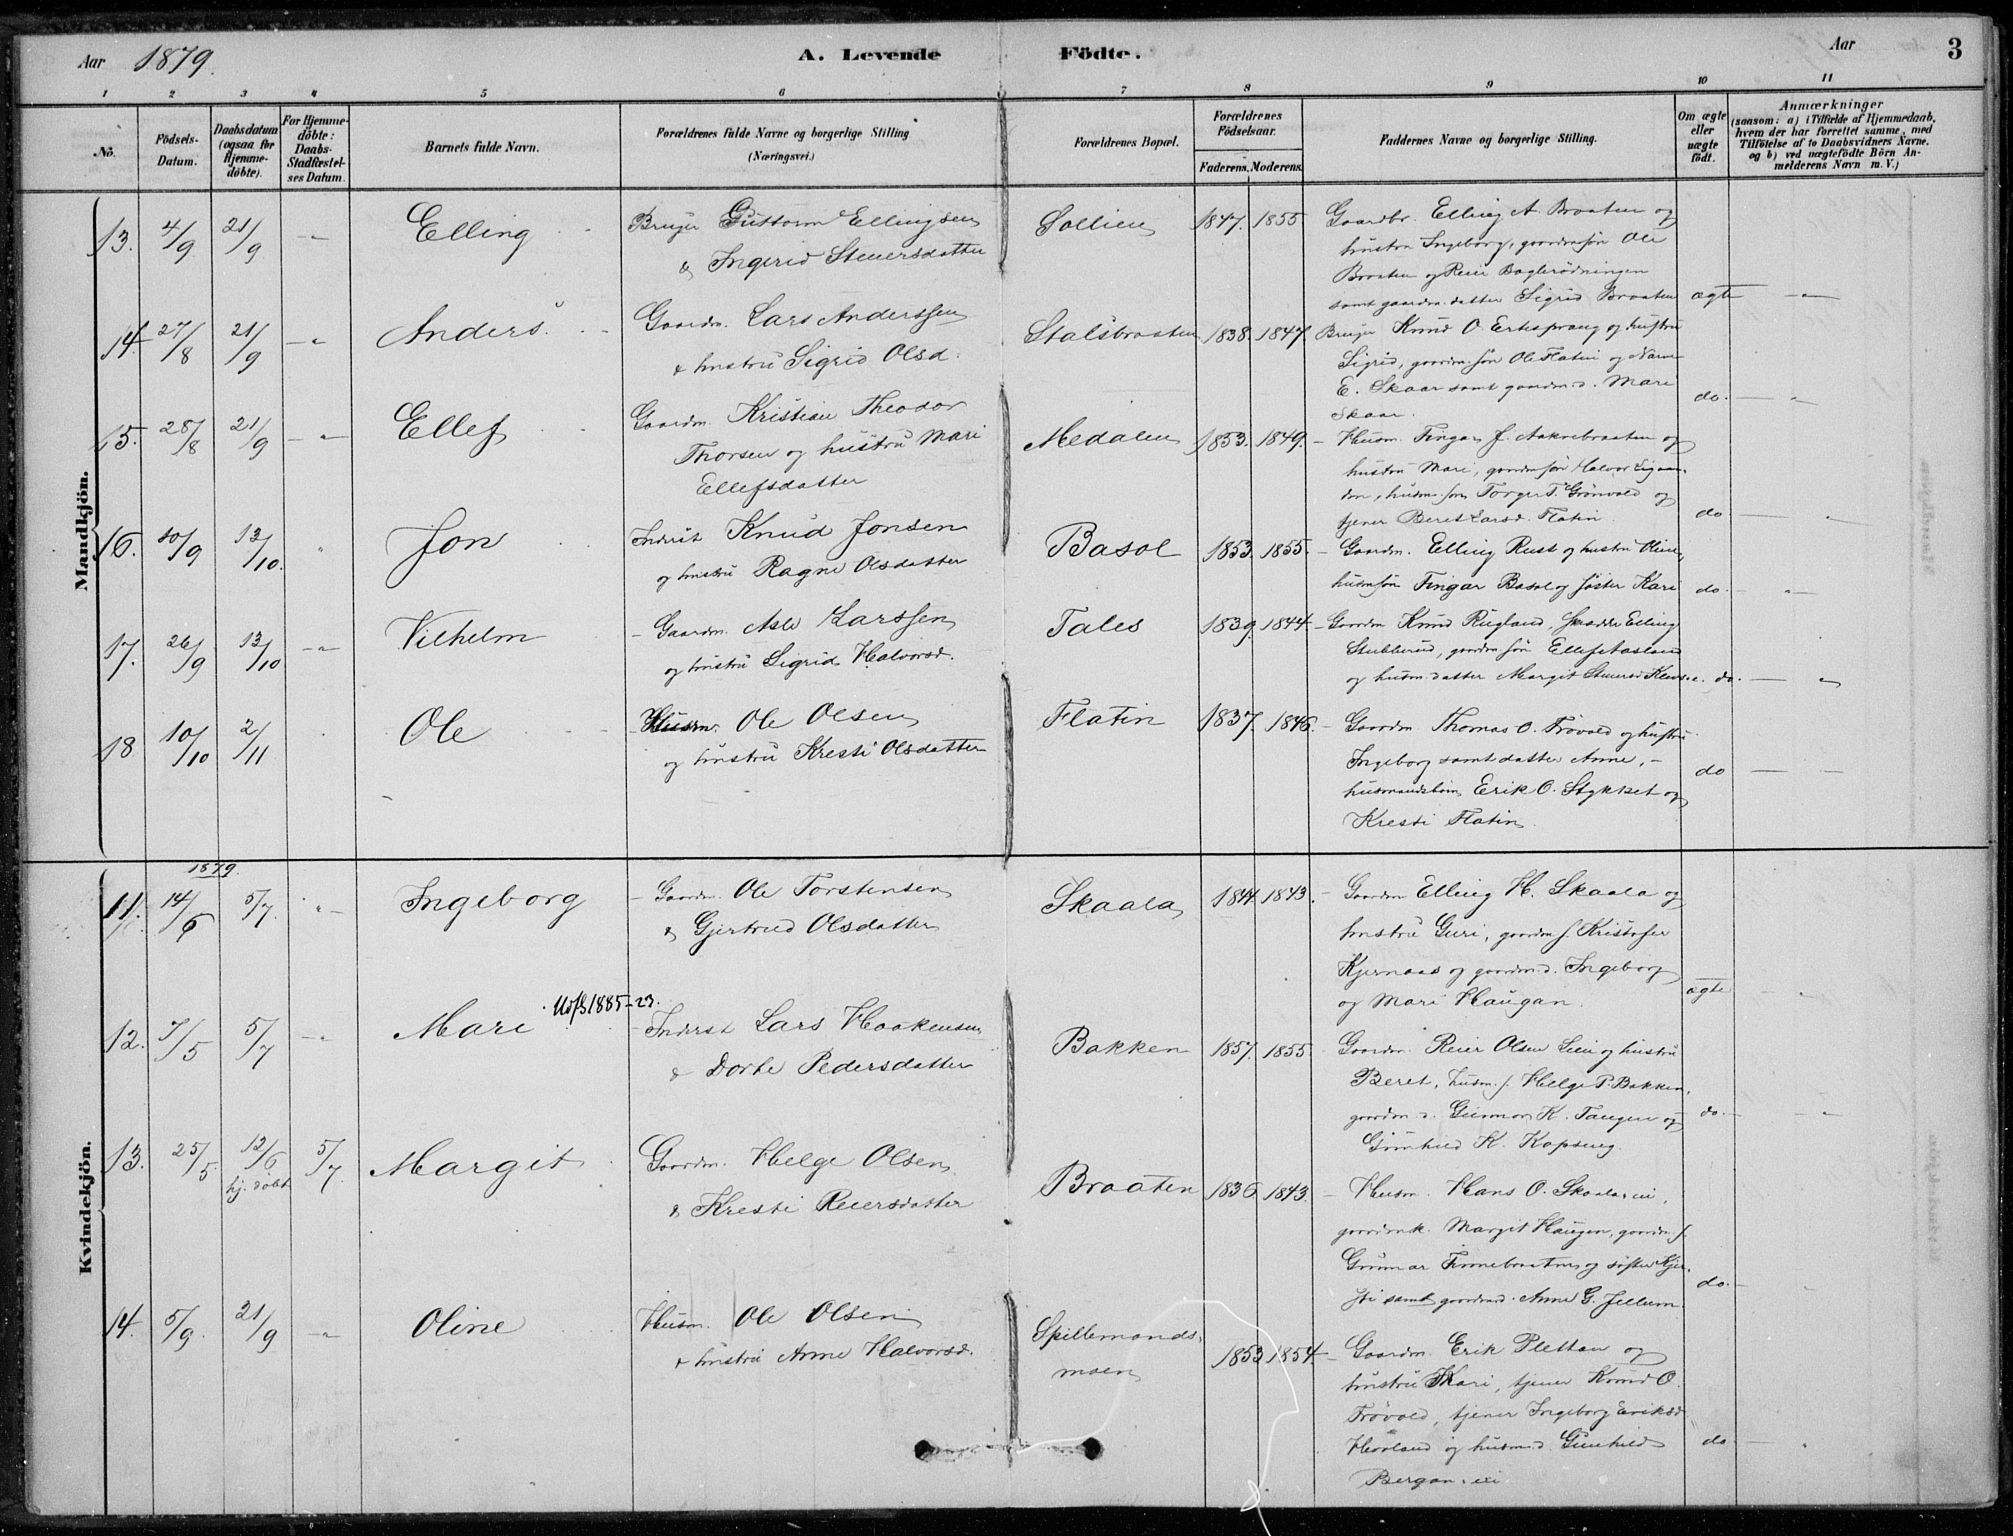 Aar 1879. A. Levende Födte. Aar 3
1 2 3 4 5 6 7 8 9 10 11
No. Födsels-Datum. Daabsdatum (ogsaa for Hjemme-döbte). For Hjemme-döbte: Daabs-Stadfæstel-ses Datum. Barnets fulde Navn. Forældrenes fulde Navne og borgerlige Stilling (Næringsvei.) Forældrenes Bopæl. Forældrenes Födselsaar. Faderens. Moderens. Faddernes Navne og borgerlige Stilling. Om ægte eller uægte født. Anmærkninger (saasom: a) i Tilfælde af Hjemmedaab, hvem der har forrettet samme, med Tilföielse af to Daabsvidners Navne. og b) ved uægtefödte Börn An-melderens Navn m. V.)
Mandkjön.
13. 4/9 21/9 -„- Elling Bruger Guttorm Ellingsen Sollien 1847. 1855 Gaardbr. Elling A. Braaten og
& Ingerid Steuersdatter hustru Ingeborg, gaardm sön Ole
Braaten og Reier Baglerödningen
samt gaardm. datter Sigrid Braaten ægte -„-
14. 27/8 21/9 -„- Anders Gaardm. Lars Anderssen Stalsbraaten 1838. 1847. Bruger Knud O. Ertesprang og hustru
& hustru Sigrid Olsd. Sigrid, gaardm. sön Ole Flatin og
E. Skaar samt gaardm. d. Mari
Skaar. do. -„-
15. 28/8 21/9 -„- Ellef Gaardm. Kristian Theodor Medalen 1853. 1849. - Husm. Fingar J. Aakrebraaten og
Thorsen og hustru Mari hustru Mari, gaardm sön Halvor
Ellefsdatter husm. sön Torger T. Grönvold og
tjener Beret Larsd. Flatin do -„-
16. 10/9 12/10. „ Jon Inderst Knud Jonsen Basol 1853. 1855. - Gaardm. Elling Rust og hustru Oline,
og hustru Ragne Olsdatter husm sön Fingar Basol og söster Kari do. -„-
17. 26/9 12/10 -„- Vilhelm - Gaardm. Asle Larssen Tales 1839. 1844. - Gaardm Knud Rugland, Elling
og hustru Sigrid Halvorsd. Stubberud, gaardm sön Ellef Aasland
og husm. datter Margit do. -„-
18 10/10 2/11 Ole Husm. Ole Olsen Flatin 1837. 1846. - Gaardm Thomas O. Trövold og hustru
og hustru Kresti Olsdatter Ingeborg samt datter Anne, -
husmandsbörn Erik O. Stykket og do
Kresti Flatin.
Kvindekjön.
1879.
11. 14/6 5/7. „- Ingeborg - Gaardm. Ole Torstensen Skaala 1844. 1843. - Gaardm Elling H. Skaala og
& Gjertrud Olsdatter hustru Guri, gaardm s. Kristofer
Kjernaas og gaardm. d. Ingeborg
og Mari Haugan. ægte „
12. 7/5 5/7 -„- Mari Udfl 1885-23. - Inderst Lars Haakensen Bakken 1857. 1855. Gaardm. Reier Olsen Lien og hustru
& Dorte Pedersdatter Beret, husm. s. Helge P. Bakken,
gaardm. d. Gunnor K. Taugen og do. „
Gunhild K. Kopseng.
13. 25/5 12/6 hj. döbt 5/7. Margit Gaardm. Helge Olsen Braaten 1836 1843. - Husm. Hans O. Skaalaeie,
& Kresti Reiersdatter gaardmk. Margit Haugen, gaardm. s.
Gunnar Finnebraaten og söster Kjer-
sti samt gaardm d. Anne G. Jellum do. „
14. 5/9. 21/9 -„- Oline Husm. Ole Olsen Spillemands- 1853 1854. - Gaardm. Erik Plettan og
& hustru Anne Halvorsd. moen hustru Kari, tjener Knud O.
Trövold, tjener Ingeborg Eriksd
Hovland og husm. d. Gunhild do „
Bergan eie